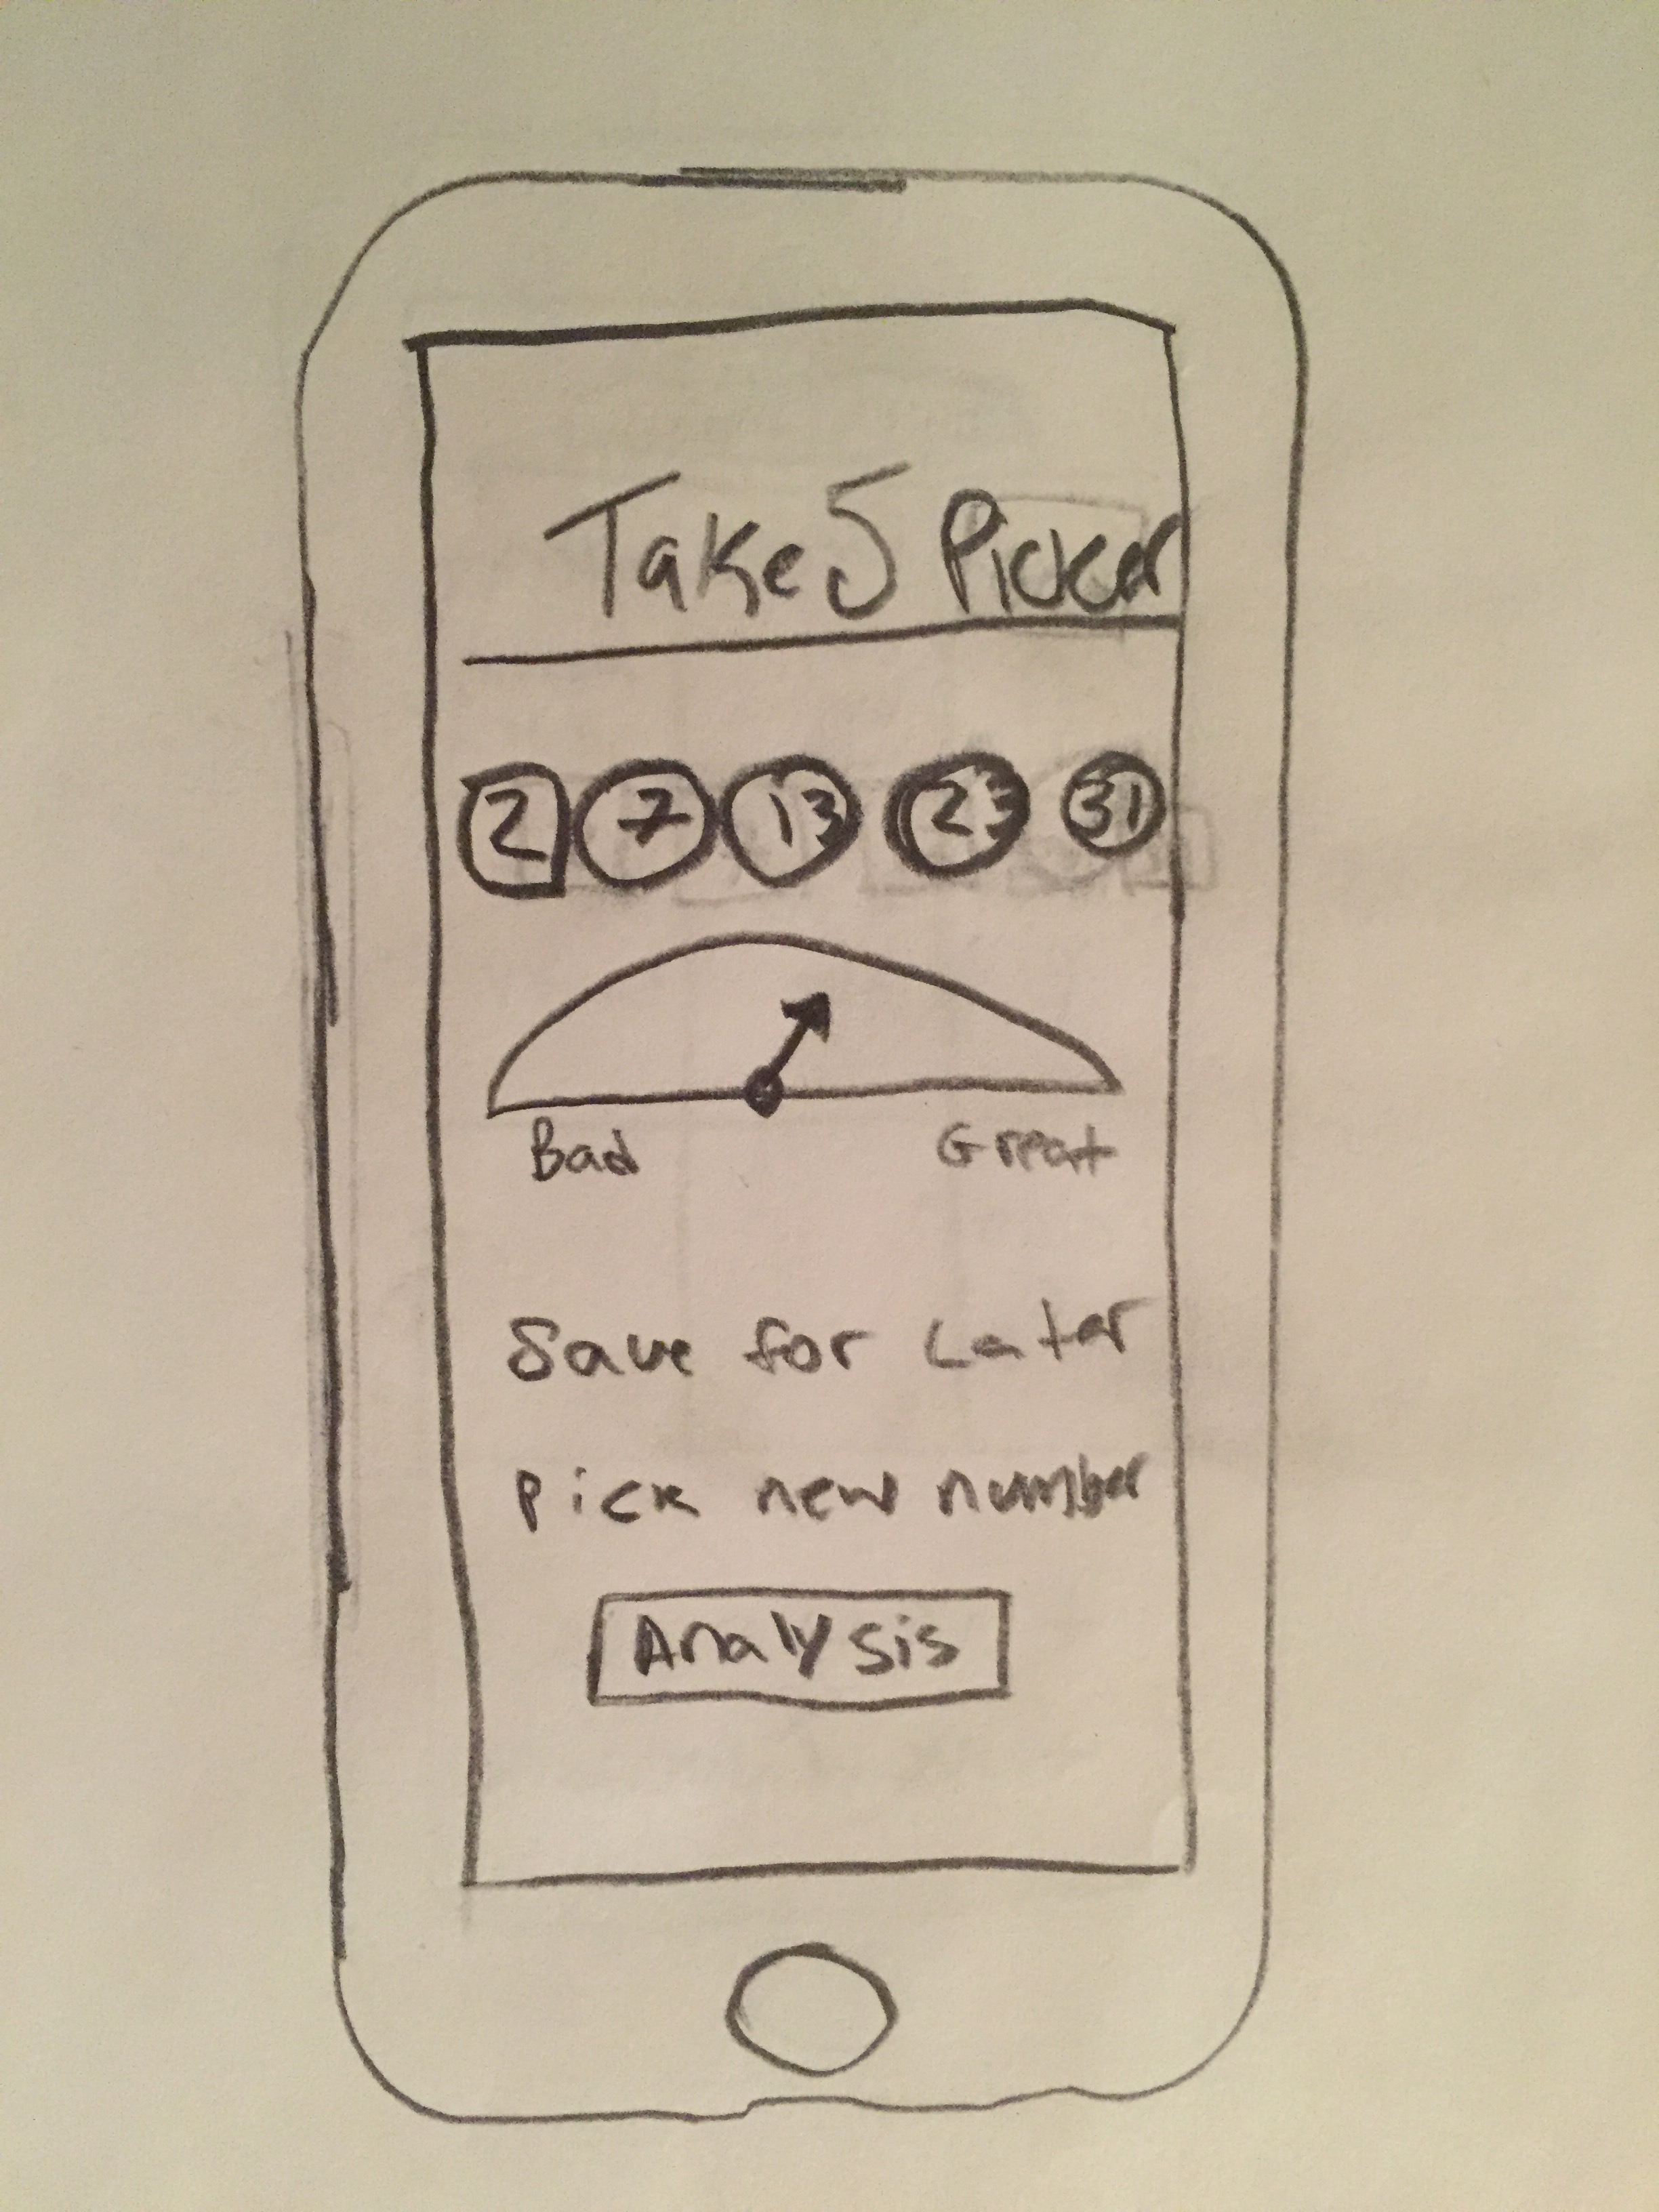 Take 5 Picker
2 7 13 23 31
Bad Great
Save for Later
pick new number
Analysis